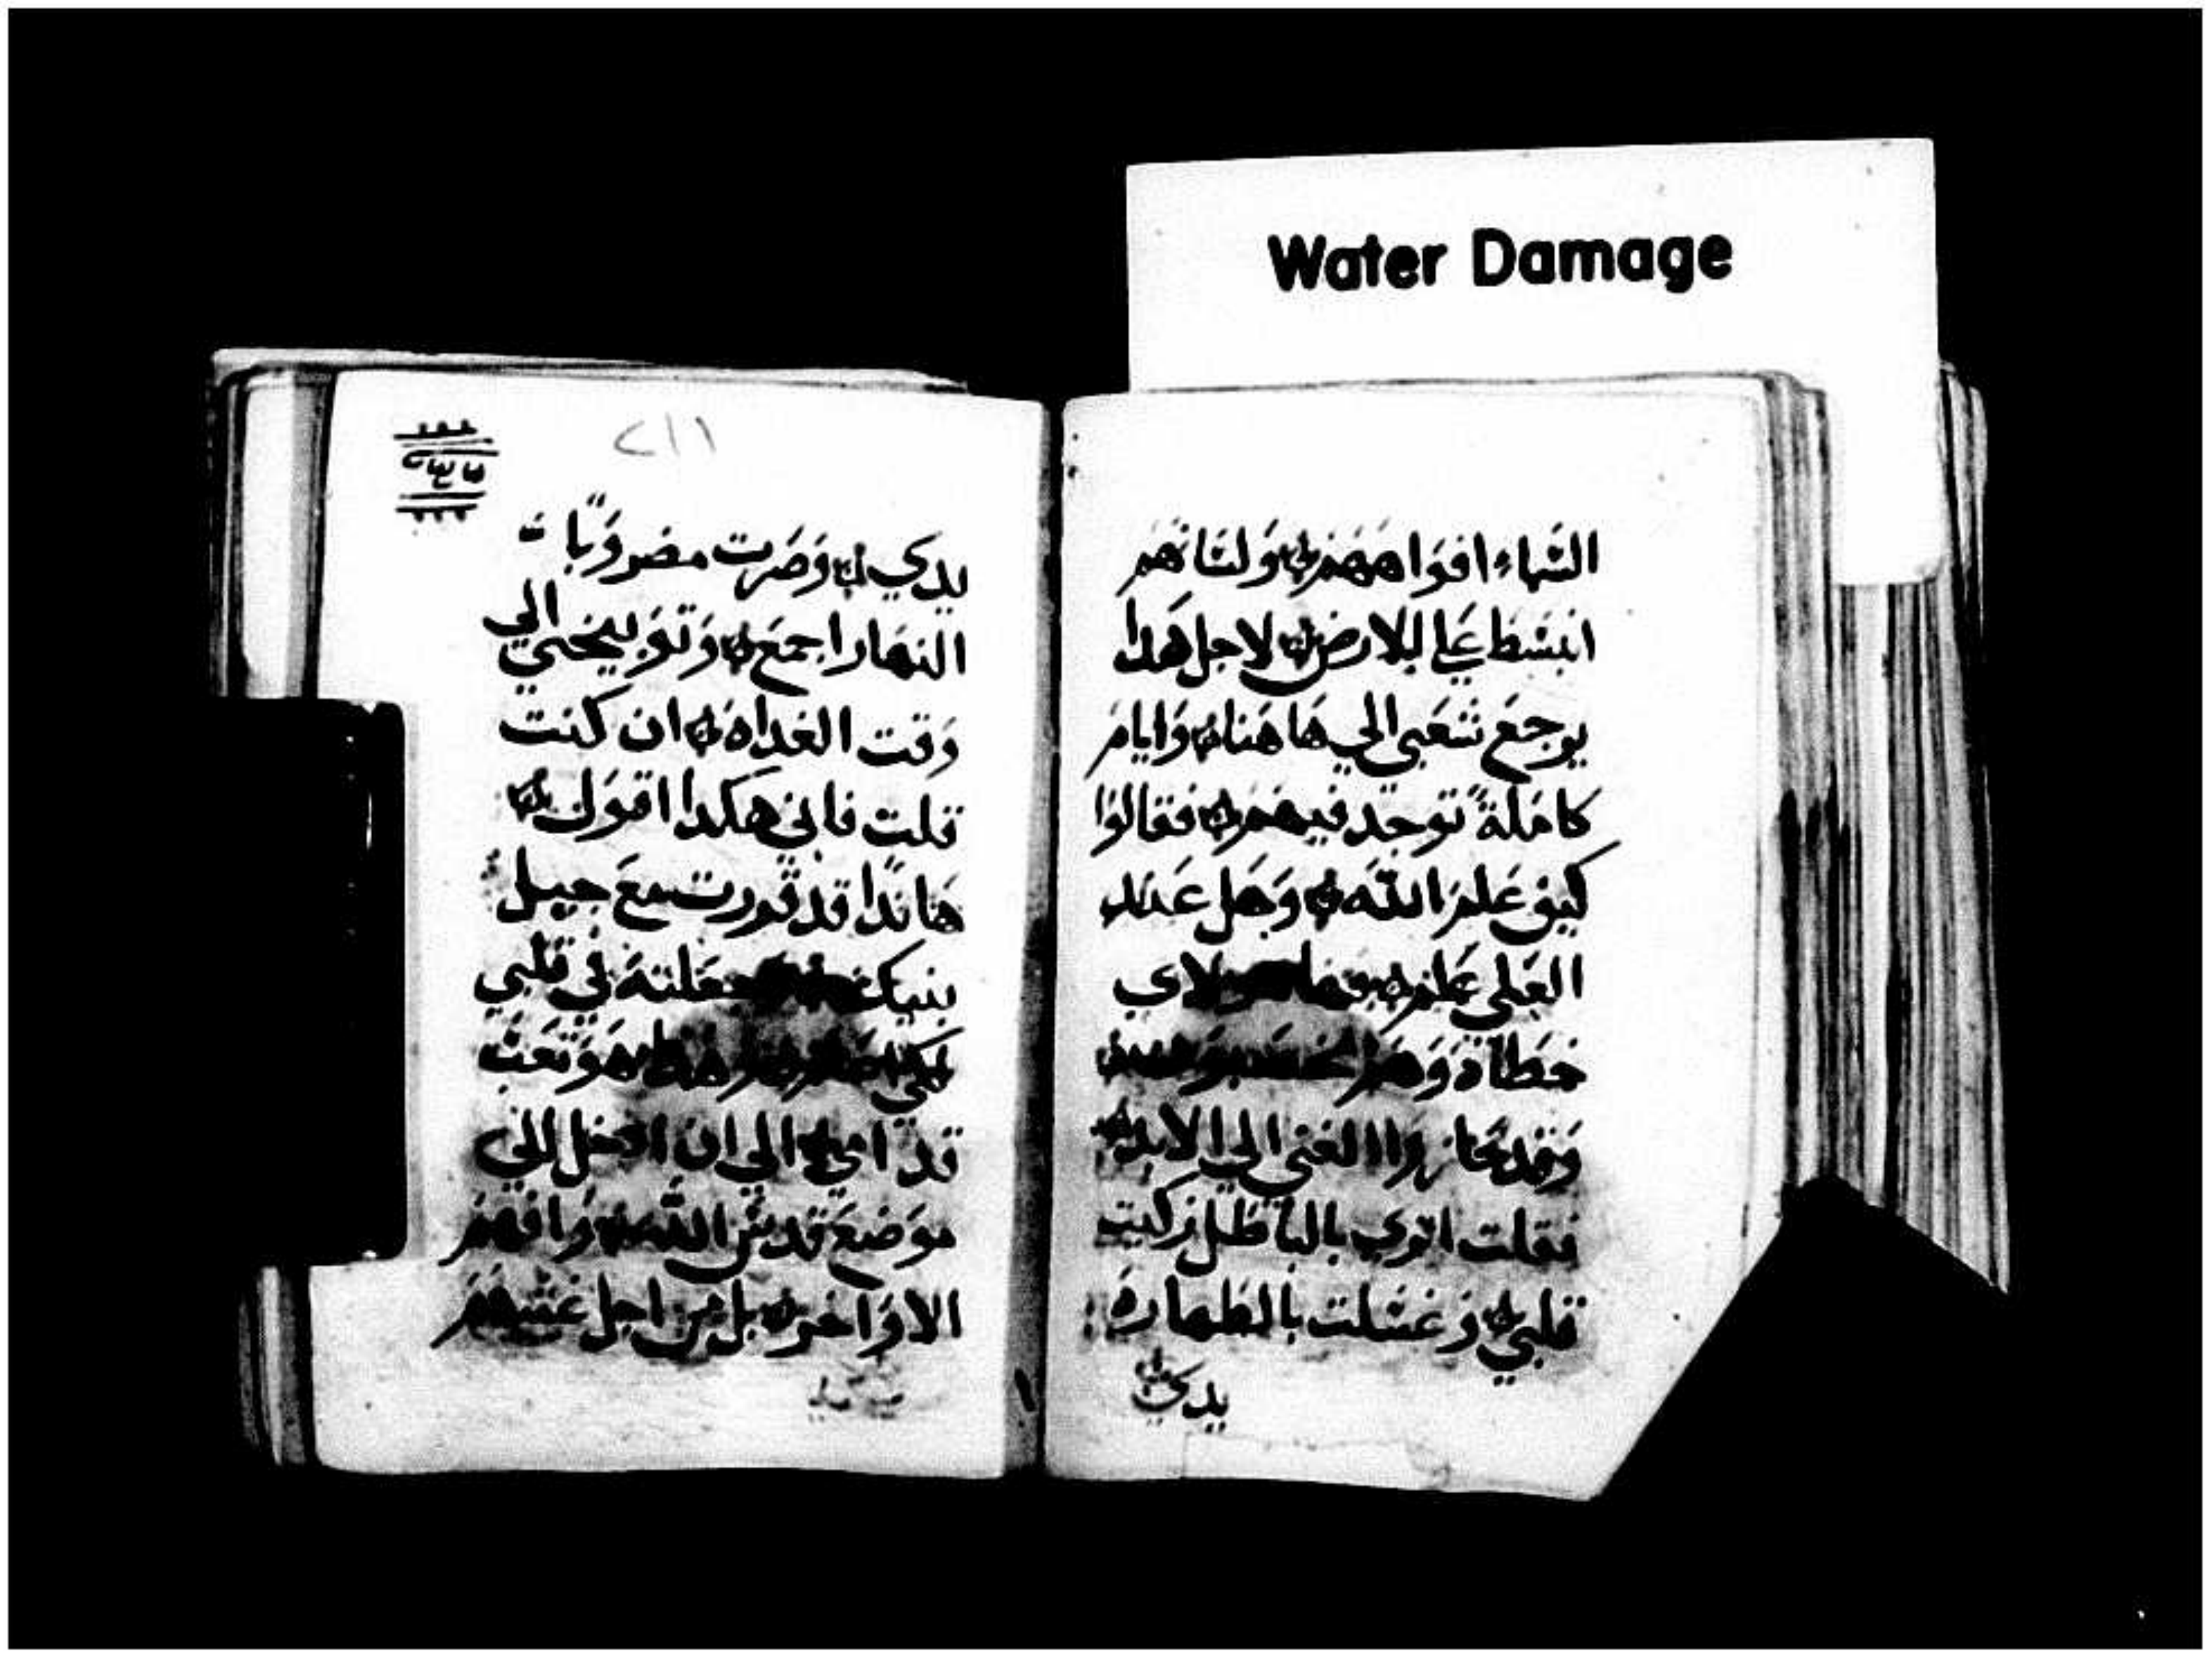 Water Damage
السماء افواههم ولسانهم
انبسط علي الارض لاجل هدا
يرجع شعبي الي هاهنا وايام
كاملة توجد فيهم فقالوا
كيف علم الله وهل عند
العلي علم فها هولاي
خطاة وهم
وقد حازوا الغني الي الابد
فقلت اتري بالباطل زكيت
قلبي وغسلت بالطهارة
يدي
٢١١
يدي وصرت مضروبا
النهار اجمع وتوبيخي الي
وقت الغداة ان كنت
قلت فاني هكدا اقول
هاندا قد قررت مع جيل
بنيك جعلته في قلبي
لكي هدا هو تعب
قد امي الي ان ادخل الي
موضع قدس الله وافهم
الاواخر بل من اجل غشهم